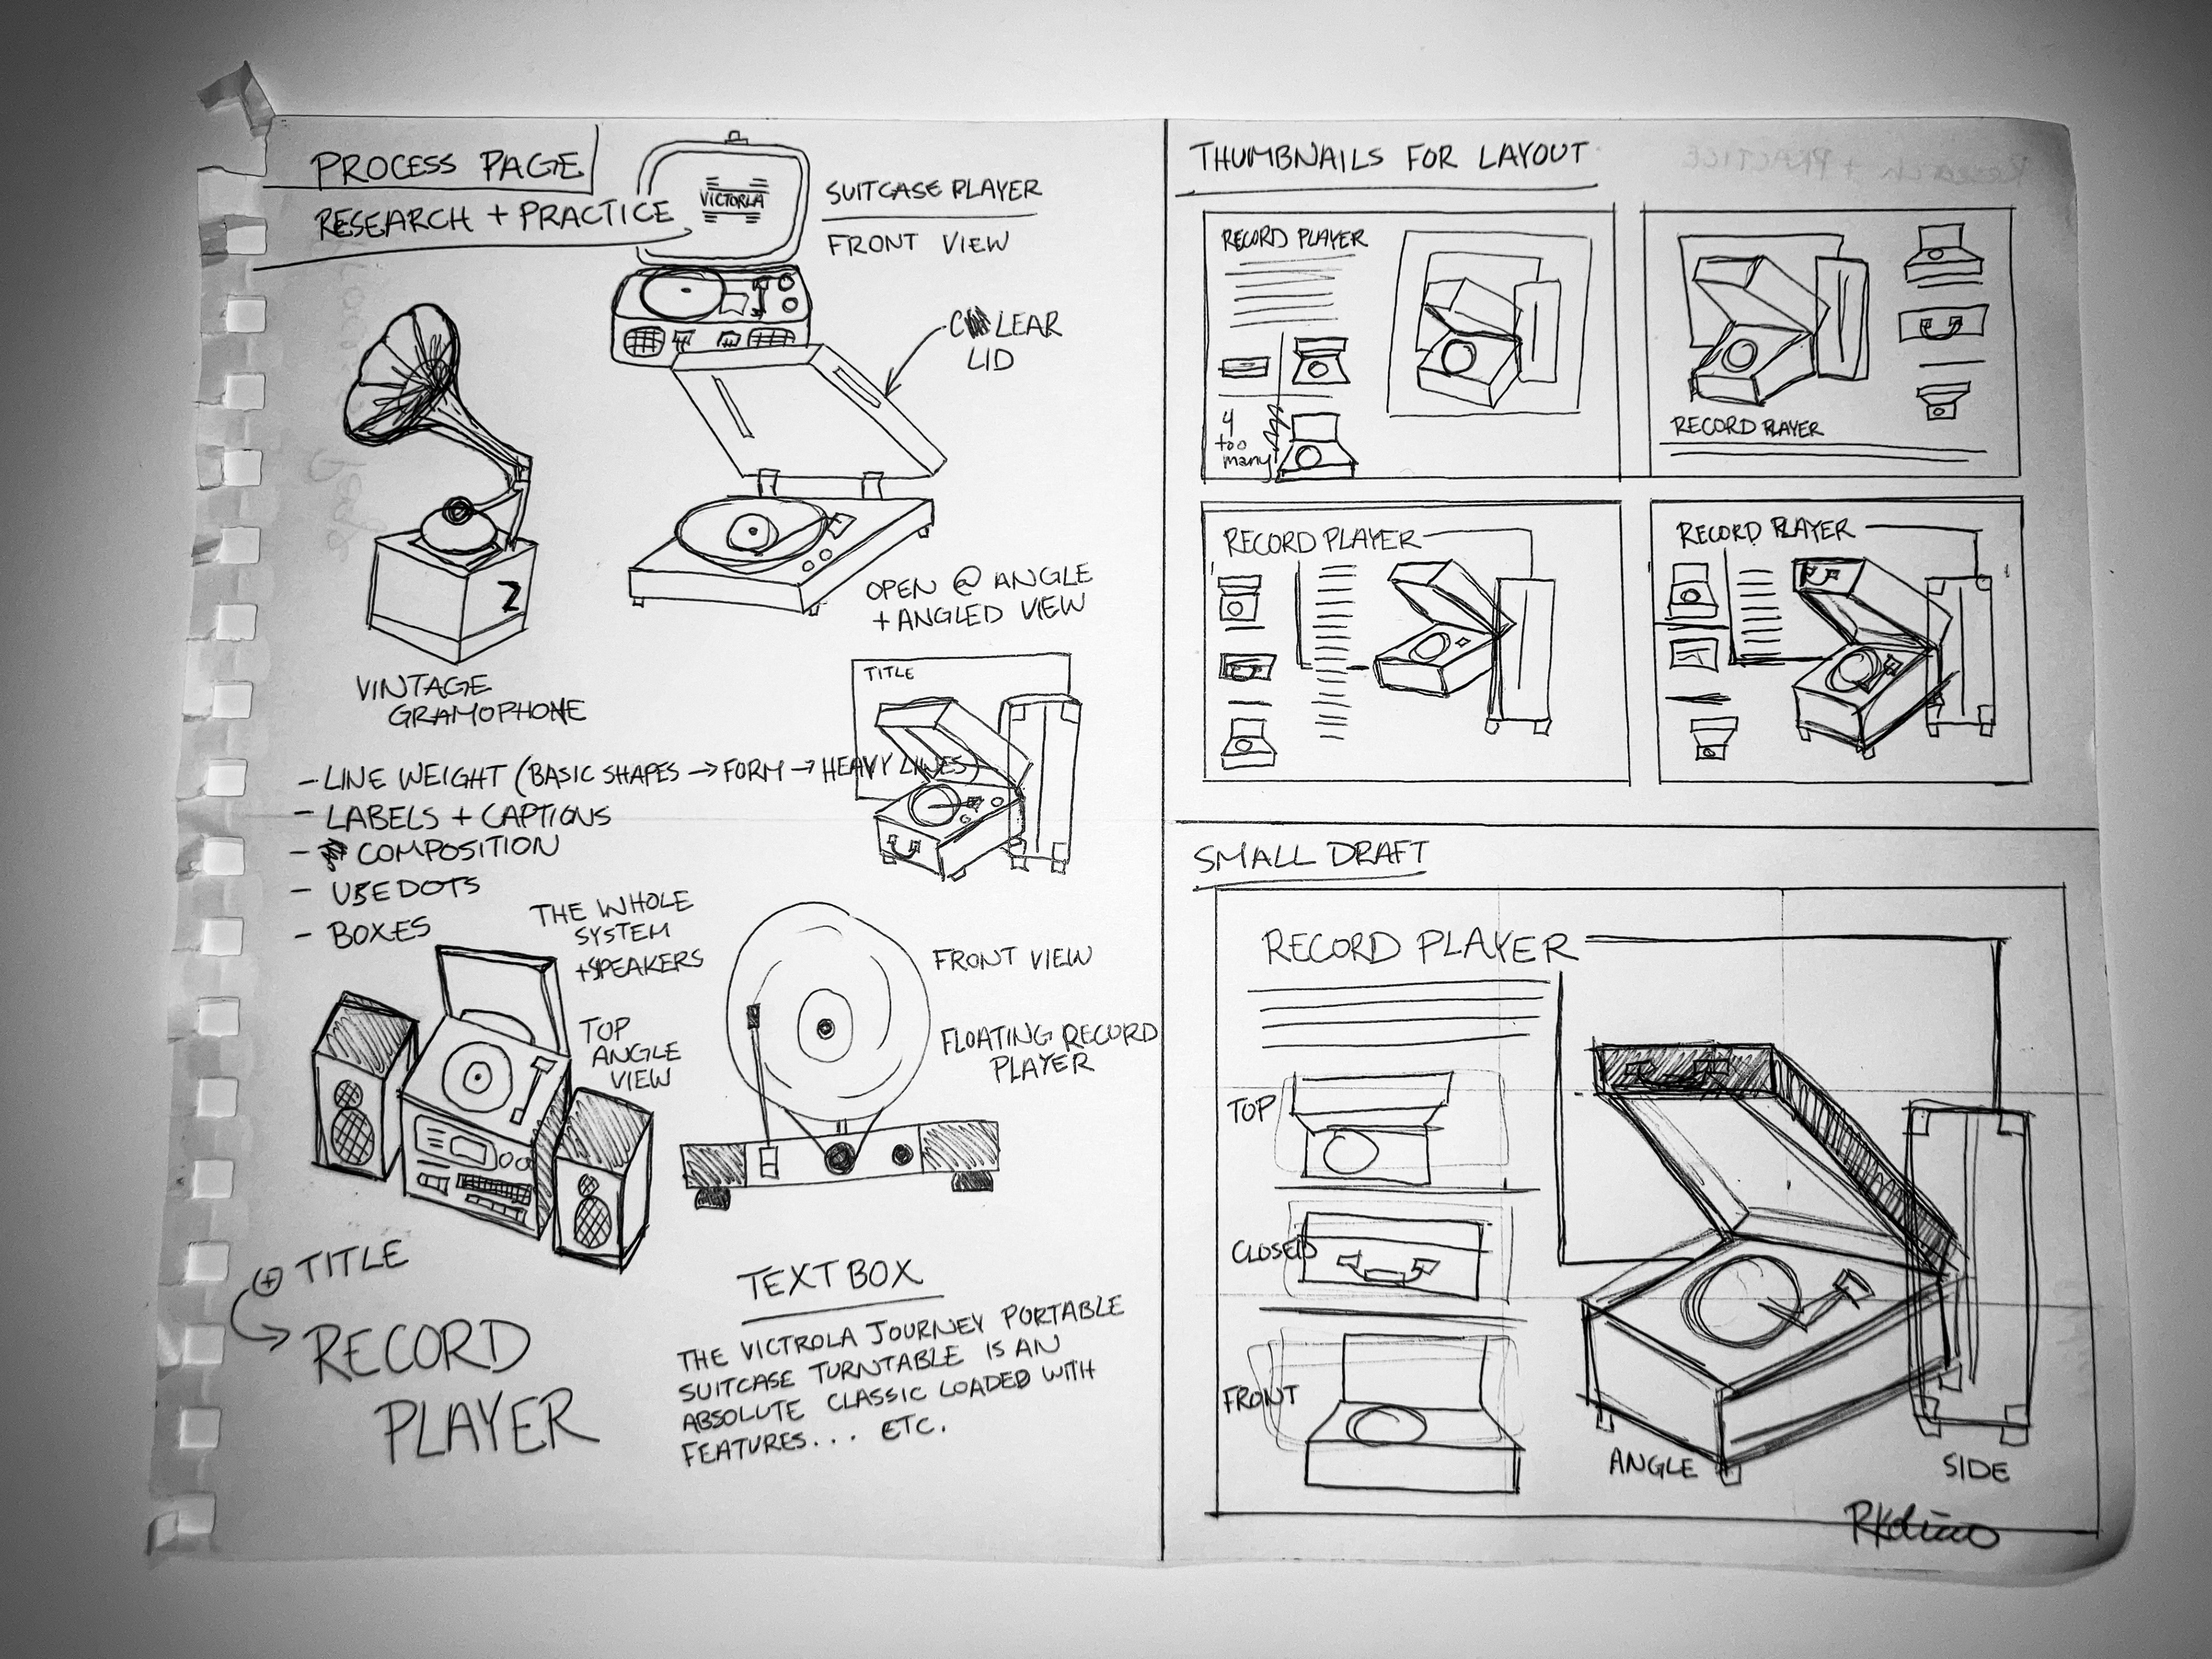 PROCESS PAGE
RESEARCH + PRACTICE
VICTORLA
SUITCASE PLAYER
FRONT VIEW
CLEAR
LID
OPEN @ ANGLE
+ ANGLED VIEW
Z
VINTAGE
GRAMOPHONE
TITLE
- LINE WEIGHT (BASIC SHAPES → FORM → HEAVY LINES)
- LABELS + CAPTIONS
- COMPOSITION
- USE DOTS
- BOXES
THE WHOLE
SYSTEM
+ SPEAKERS
TOP
ANGLE
VIEW
FRONT VIEW
FLOATING RECORD
PLAYER
+ TITLE
→ RECORD
PLAYER
TEXT BOX
THE VICTROLA JOURNEY PORTABLE
SUITCASE TURNTABLE IS AN
ABSOLUTE CLASSIC LOADED WITH
FEATURES... ETC.
THUMBNAILS FOR LAYOUT
Research + PRACTICE
RECORD PLAYER
4
too
many
RECORD PLAYER
RECORD PLAYER
RECORD PLAYER
SMALL DRAFT
RECORD PLAYER
TOP
CLOSED
FRONT
ANGLE
SIDE